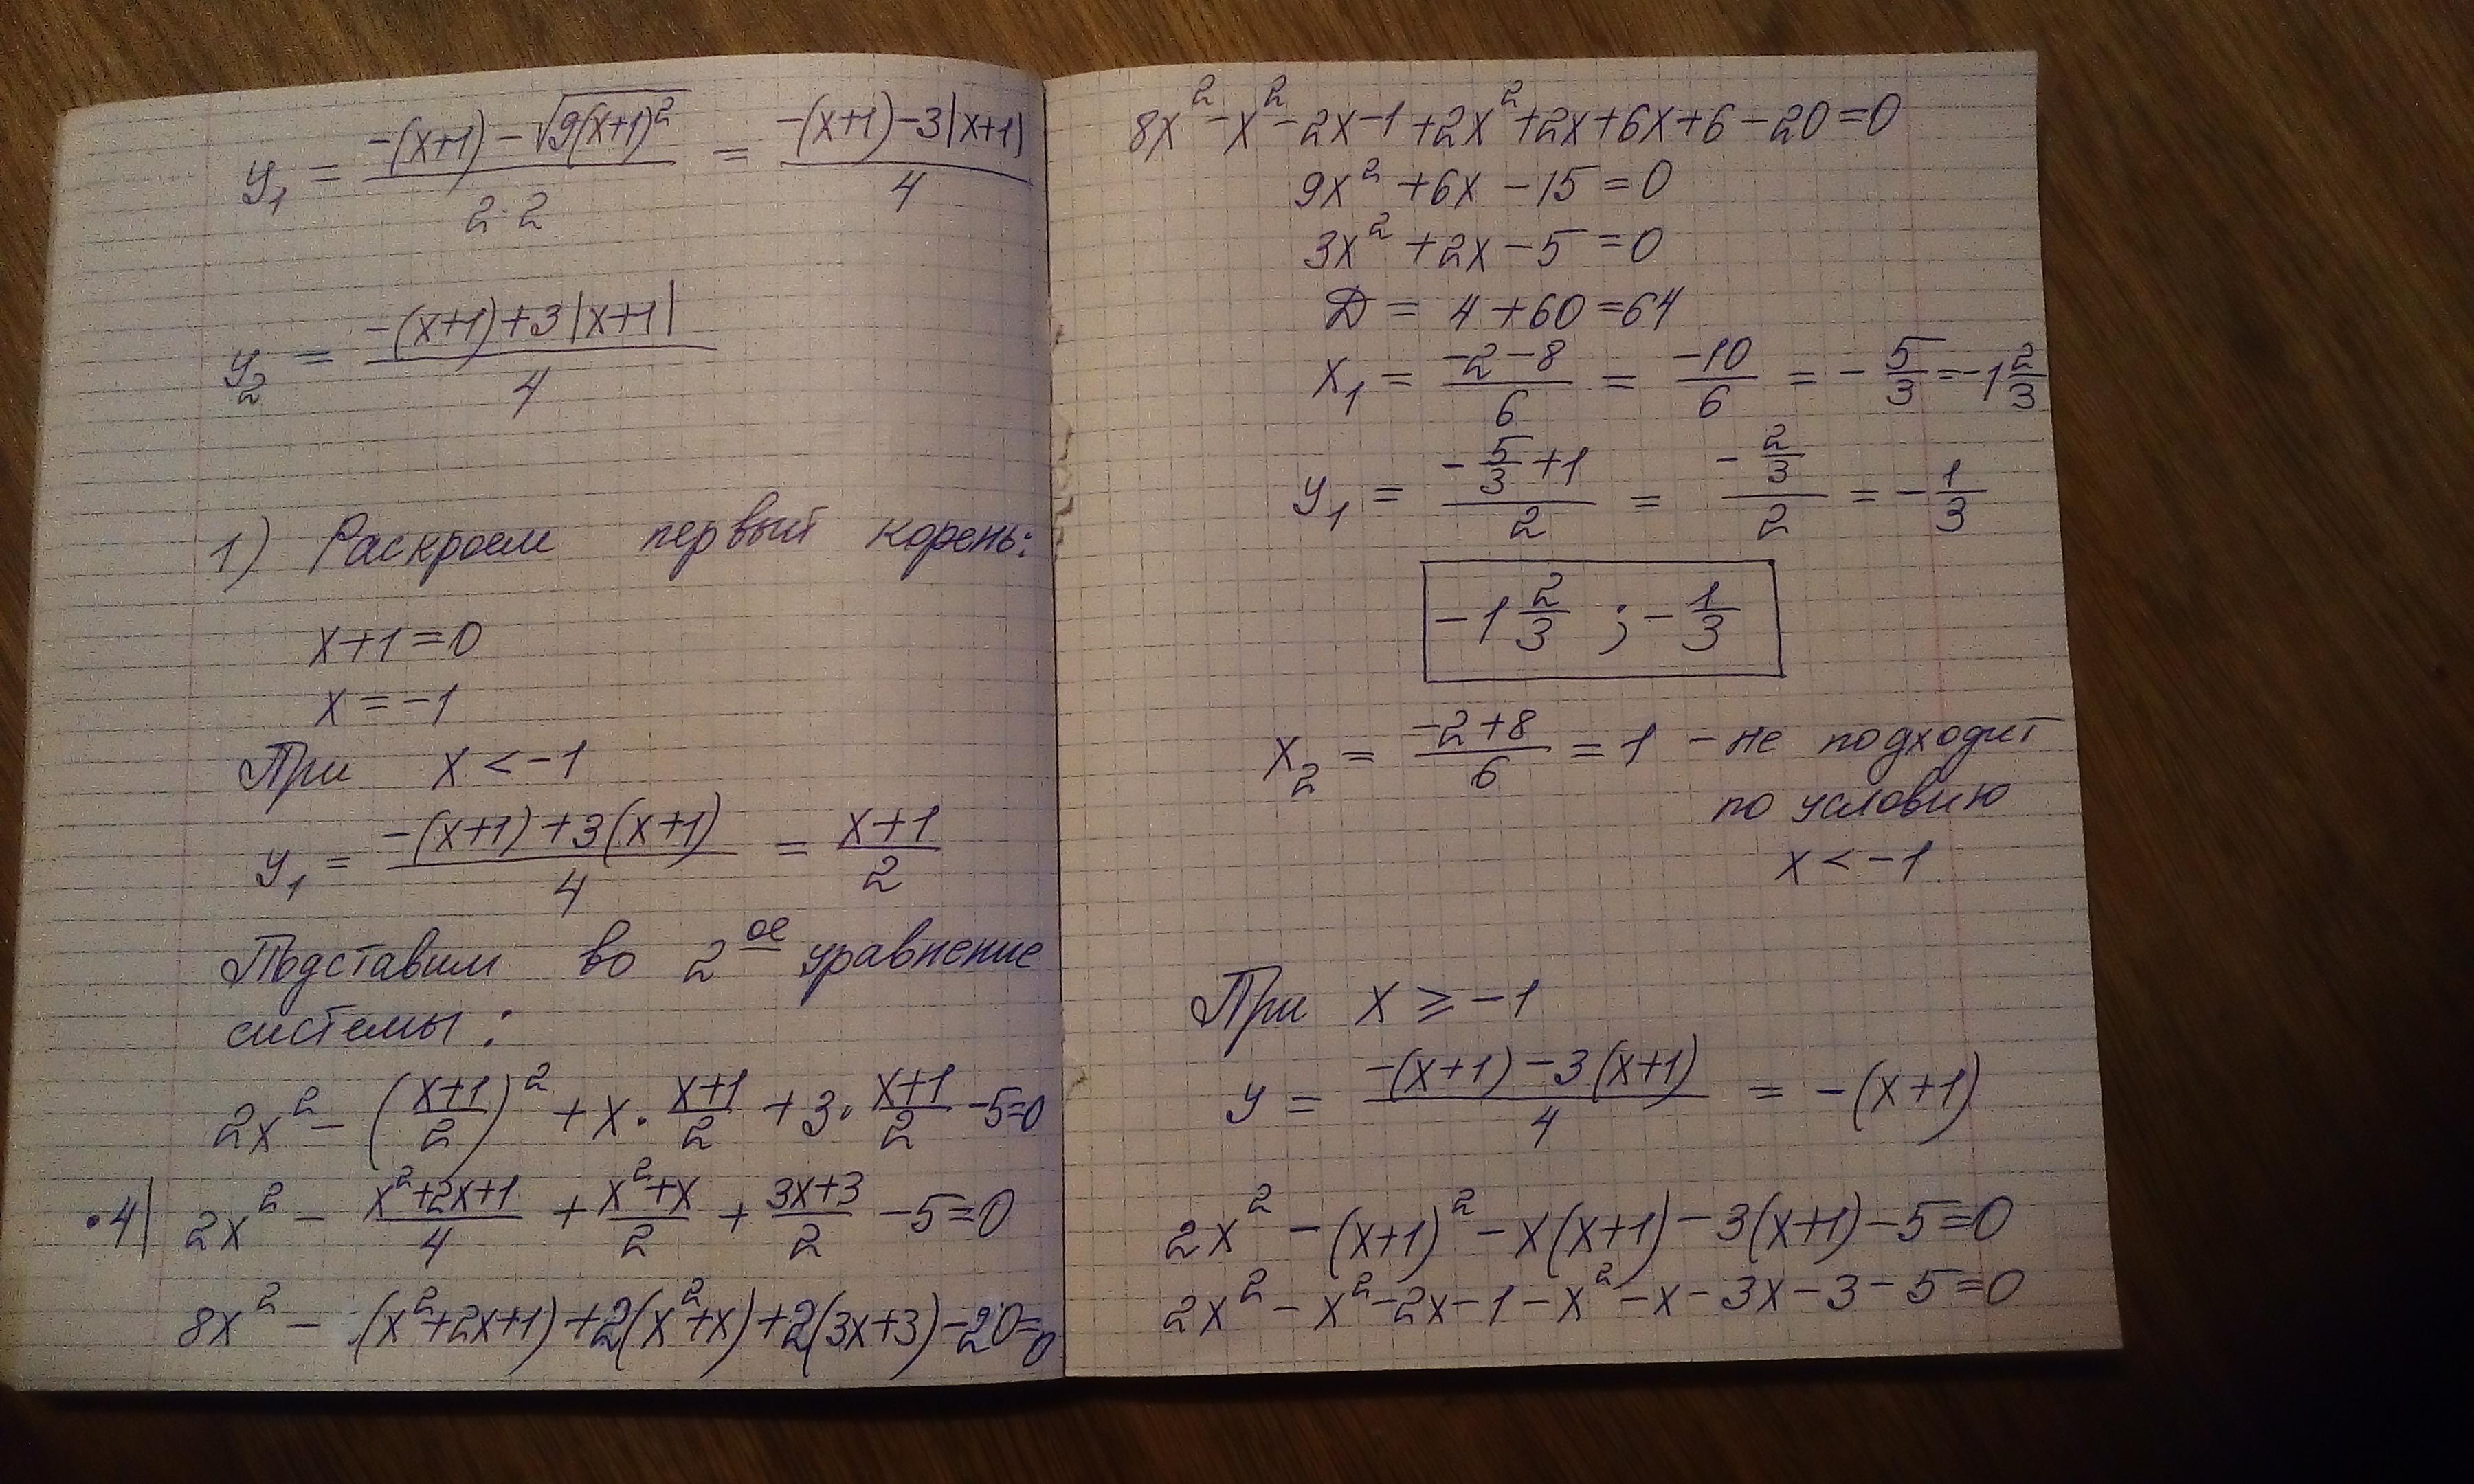 y₁ = (-(x+1) - √(9(x+1)²))/(2·2) = (-(x+1) - 3|x+1|)/4
y₂ = (-(x+1) + 3|x+1|)/4
1) Раскроем первый корень:
x+1=0
x=-1
При x < -1
y₁ = (-(x+1) + 3(x+1))/4 = (x+1)/2
Подставим во 2ое уравнение
системы:
2x² - ((x+1)/2)² + x·(x+1)/2 + 3·(x+1)/2 - 5=0
·4| 2x² - (x²+2x+1)/4 + (x²+x)/2 + (3x+3)/2 - 5=0
8x² - (x²+2x+1) + 2(x²+x) + 2(3x+3) - 20=0
8x² - x² - 2x - 1 + 2x² + 2x + 6x + 6 - 20 = 0
9x² + 6x - 15 = 0
3x² + 2x - 5 = 0
D = 4 + 60 = 64
x₁ = (-2-8)/6 = -10/6 = -5/3 = -1 2/3
y₁ = (-5/3 + 1)/2 = (-2/3)/2 = -1/3
-1 2/3 ; -1/3
x₂ = (-2+8)/6 = 1 - не подходит
по условию
x < -1
При x ⩾ -1
y = (-(x+1) - 3(x+1))/4 = -(x+1)
2x² - (x+1)² - x(x+1) - 3(x+1) - 5=0
2x² - x² - 2x - 1 - x² - x - 3x - 3 - 5 = 0